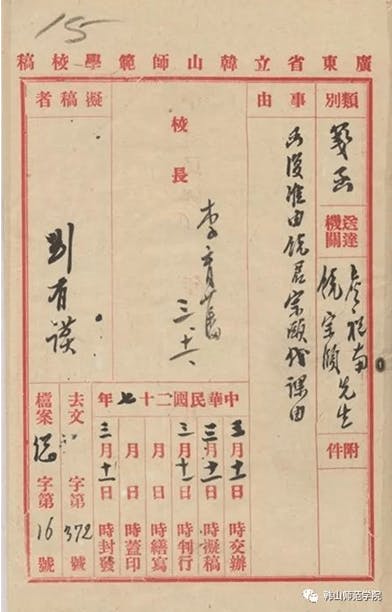 15
廣東省立韓山師範學校稿
類別
箋函
送達機關
詹祝南
饒宗頤 先生
附件
事由
函復准由饒君宗頤代課由
校長
李育藩
三、十一
擬稿者
劉有謨
中華民國二十七年
三月十一日 時交辦
三月十一日 時擬稿
三月十一日 時判行
月 日 時繕寫
月 日 時蓋印
三月十一日 時封發
去文 字第372號
檔案 總字第16號
韩山师范学院